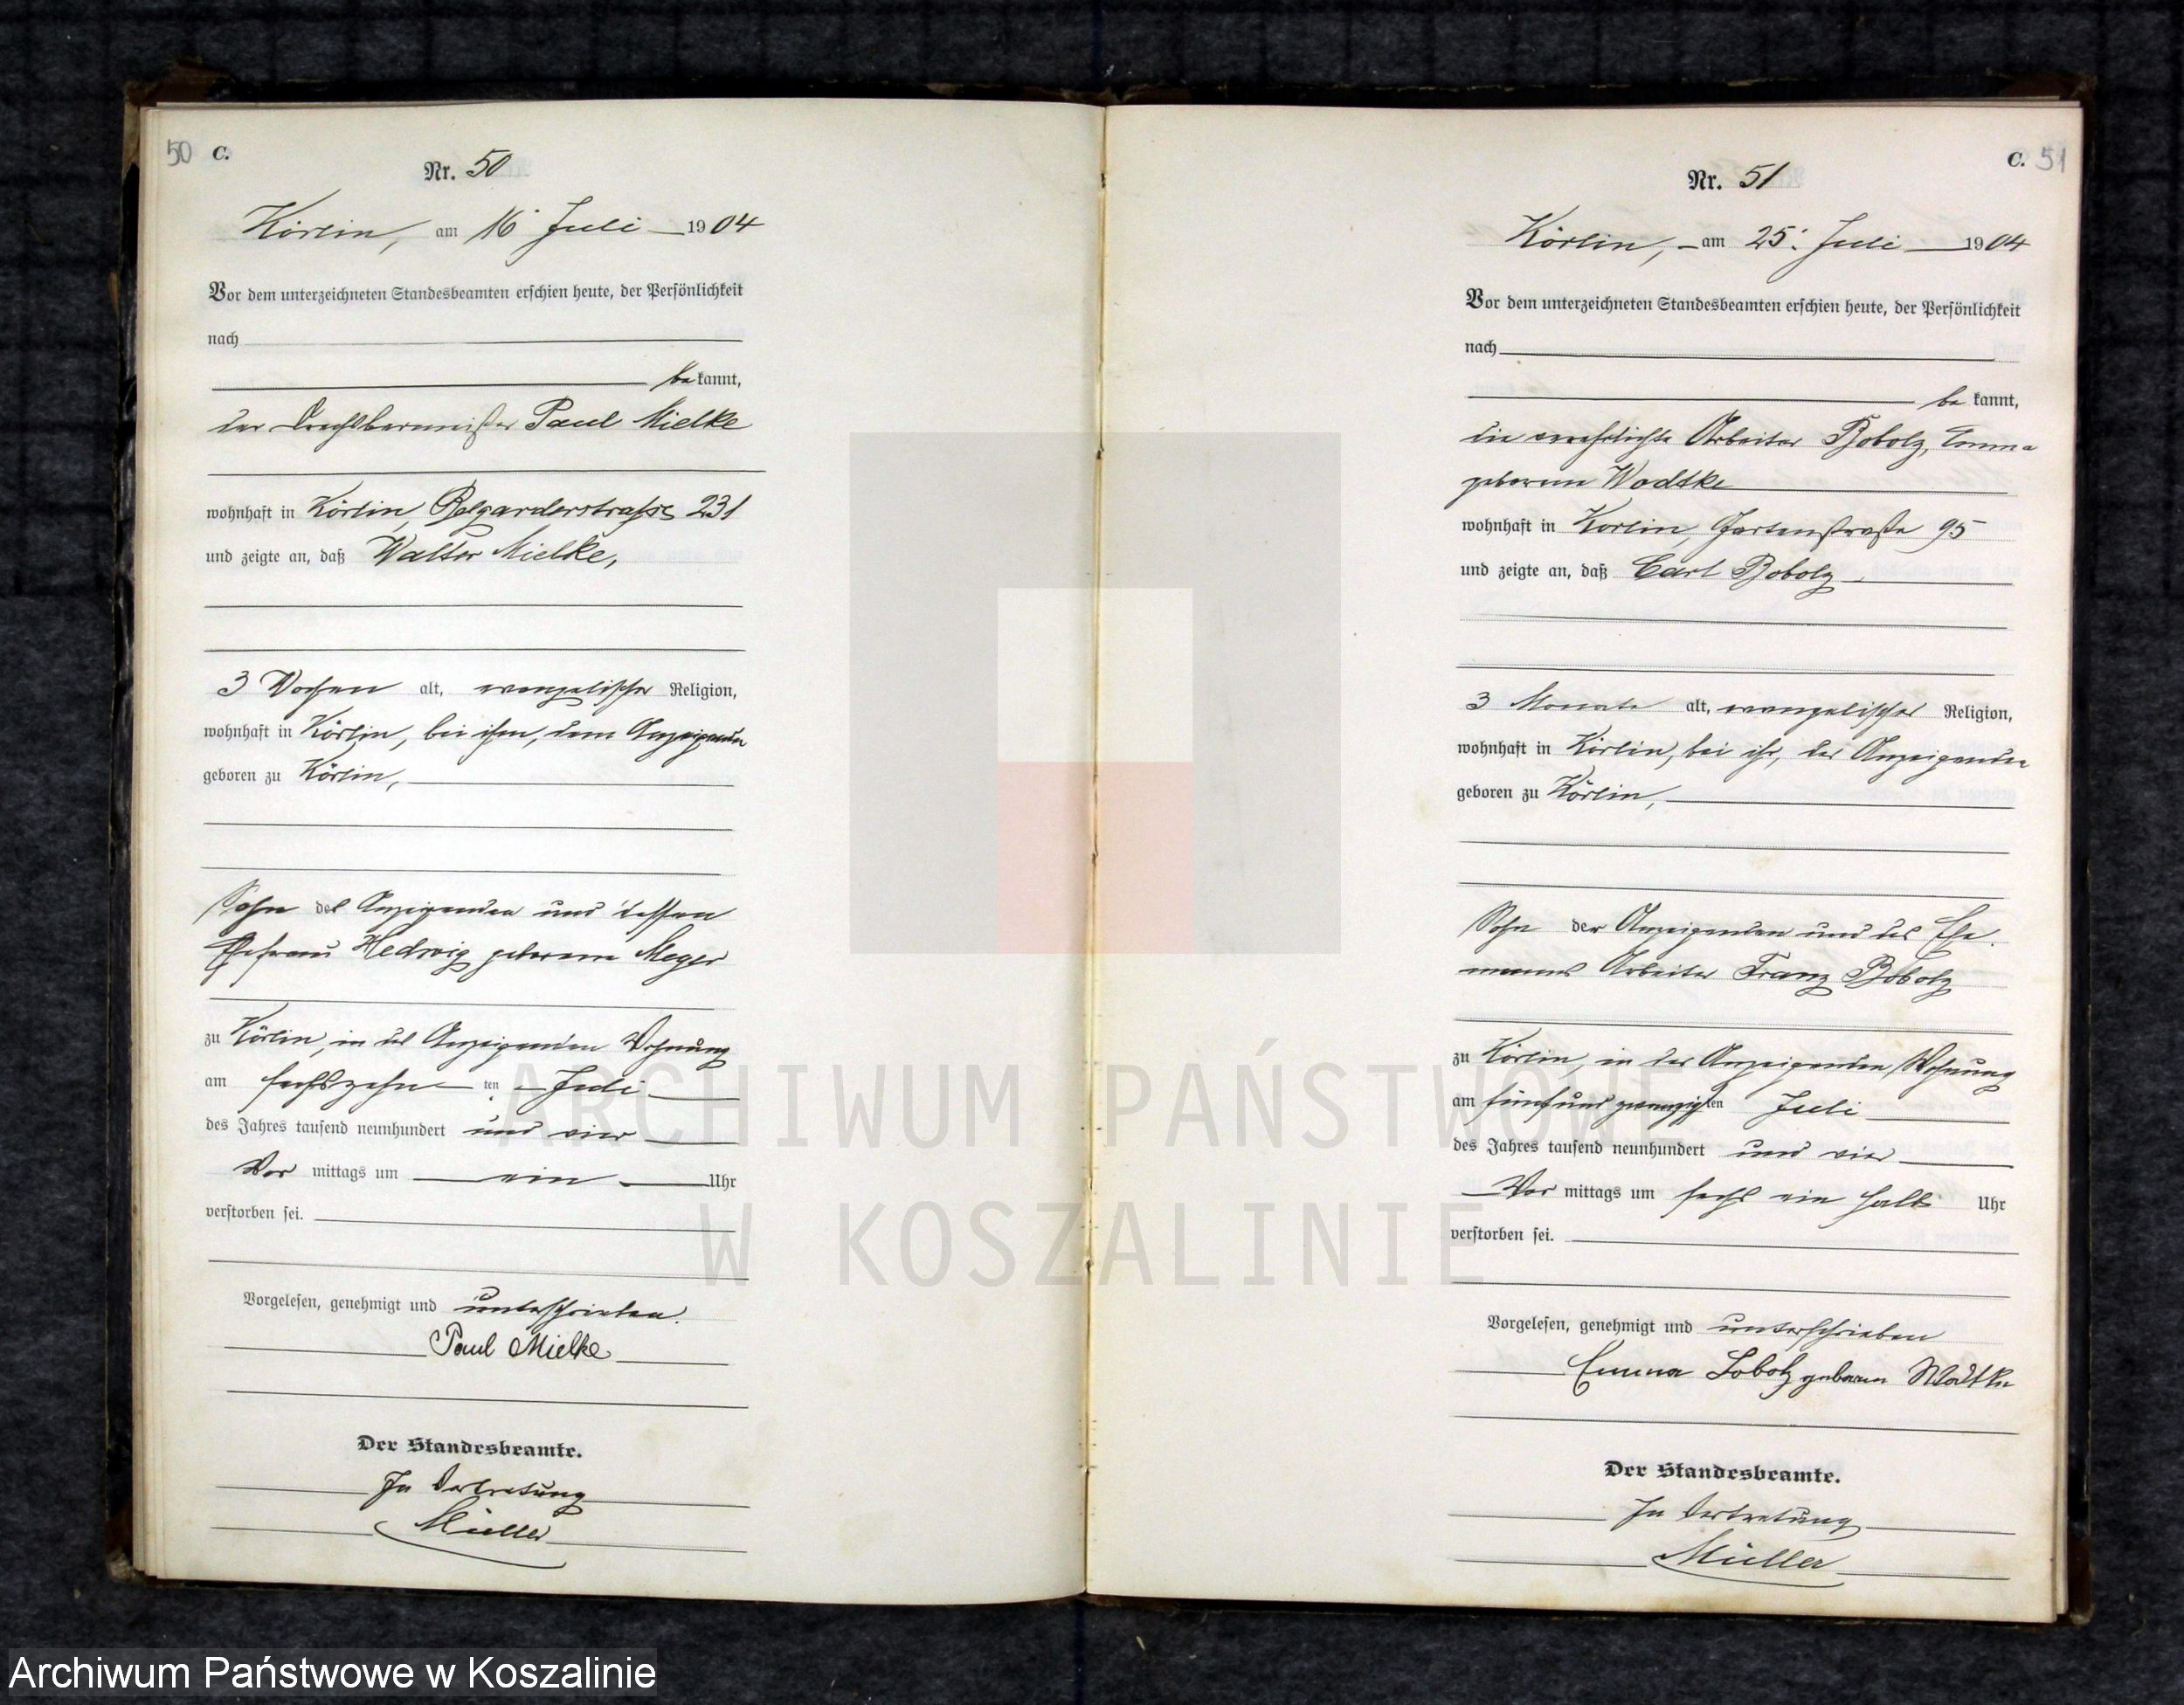 50 C.
Nr. 50
Körlin, am 16. Juli 1904
Vor dem unterzeichneten Standesbeamten erschien heute, der Persönlichkeit
nach
bekannt,
der Drechslermeister Paul Mielke
wohnhaft in Körlin, Belgarderstrasse 231
und zeigte an, daß Walter Mielke,
3 Wochen alt, evangelischer Religion,
wohnhaft in Körlin, bei ihm, dem Anzeigenden
geboren zu Körlin,
Sohn des Anzeigenden und dessen
Ehefrau Hedwig geborene Meyer
zu Körlin, in des Anzeigenden Wohnung
am sechszehn ten Juli
des Jahres tausend neunhundert und vier
Vor mittags um ein Uhr
verstorben sei.
Vorgelesen, genehmigt und unterschrieben.
Paul Mielke
Der Standesbeamte.
In Vertretung
Müller
C. 51
Nr. 51
Körlin, am 25. Juli 1904
Vor dem unterzeichneten Standesbeamten erschien heute, der Persönlichkeit
nach
bekannt,
die verehelichte Arbeiter Bobolz, Emma
geborene Wodtke
wohnhaft in Körlin, Gartenstraße 95
und zeigte an, daß Carl Bobolz
3 Monate alt, evangelischer Religion,
wohnhaft in Körlin, bei ihr, der Anzeigenden
geboren zu Körlin,
Sohn der Anzeigenden und des Ehe-
manns Arbeiter Franz Bobolz
zu Körlin, in der Anzeigenden Wohnung
am fünfundzwanzigsten Juli
des Jahres tausend neunhundert und vier
Vor mittags um sechs ein halb Uhr
verstorben sei.
Vorgelesen, genehmigt und unterschrieben
Emma Bobolz geboren Wodtke
Der Standesbeamte.
In Vertretung
Müller
ARCHIWUM PAŃSTWOWE
W KOSZALINIE
Archiwum Państwowe w Koszalinie